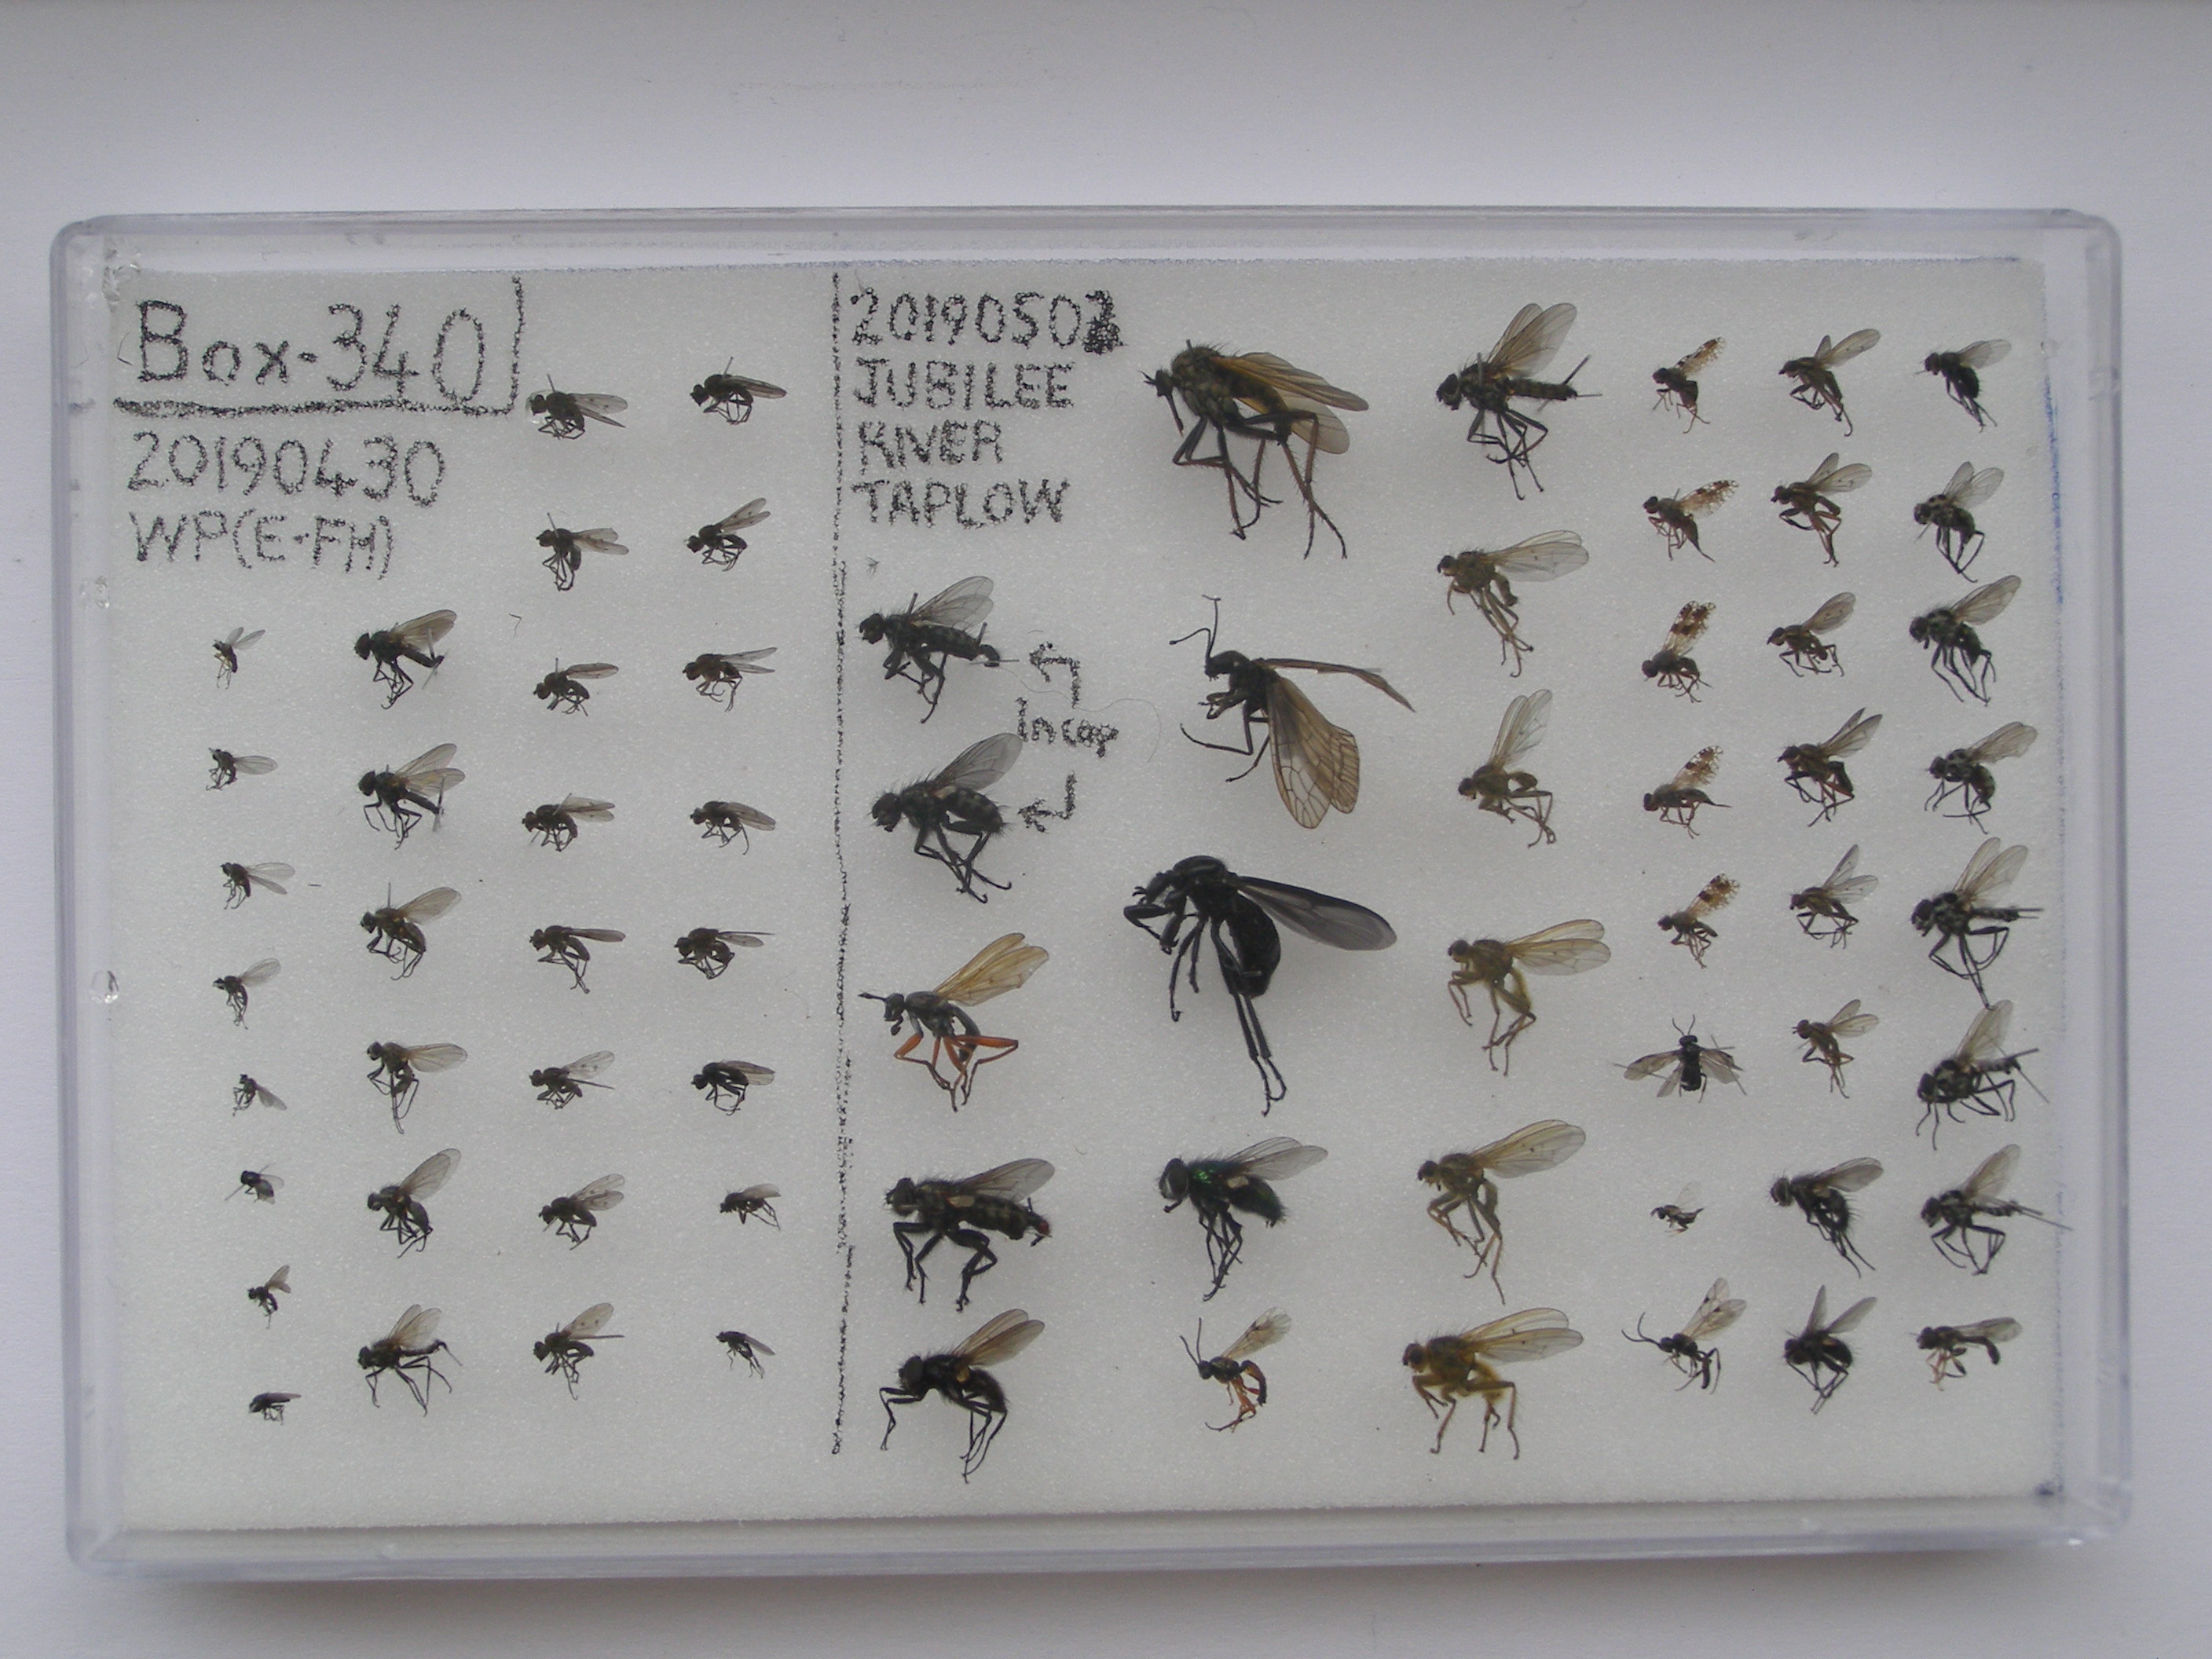 Box-340
20190430
WP(E-FH)
20190502
JUBILEE
RIVER
TAPLOW
In cop